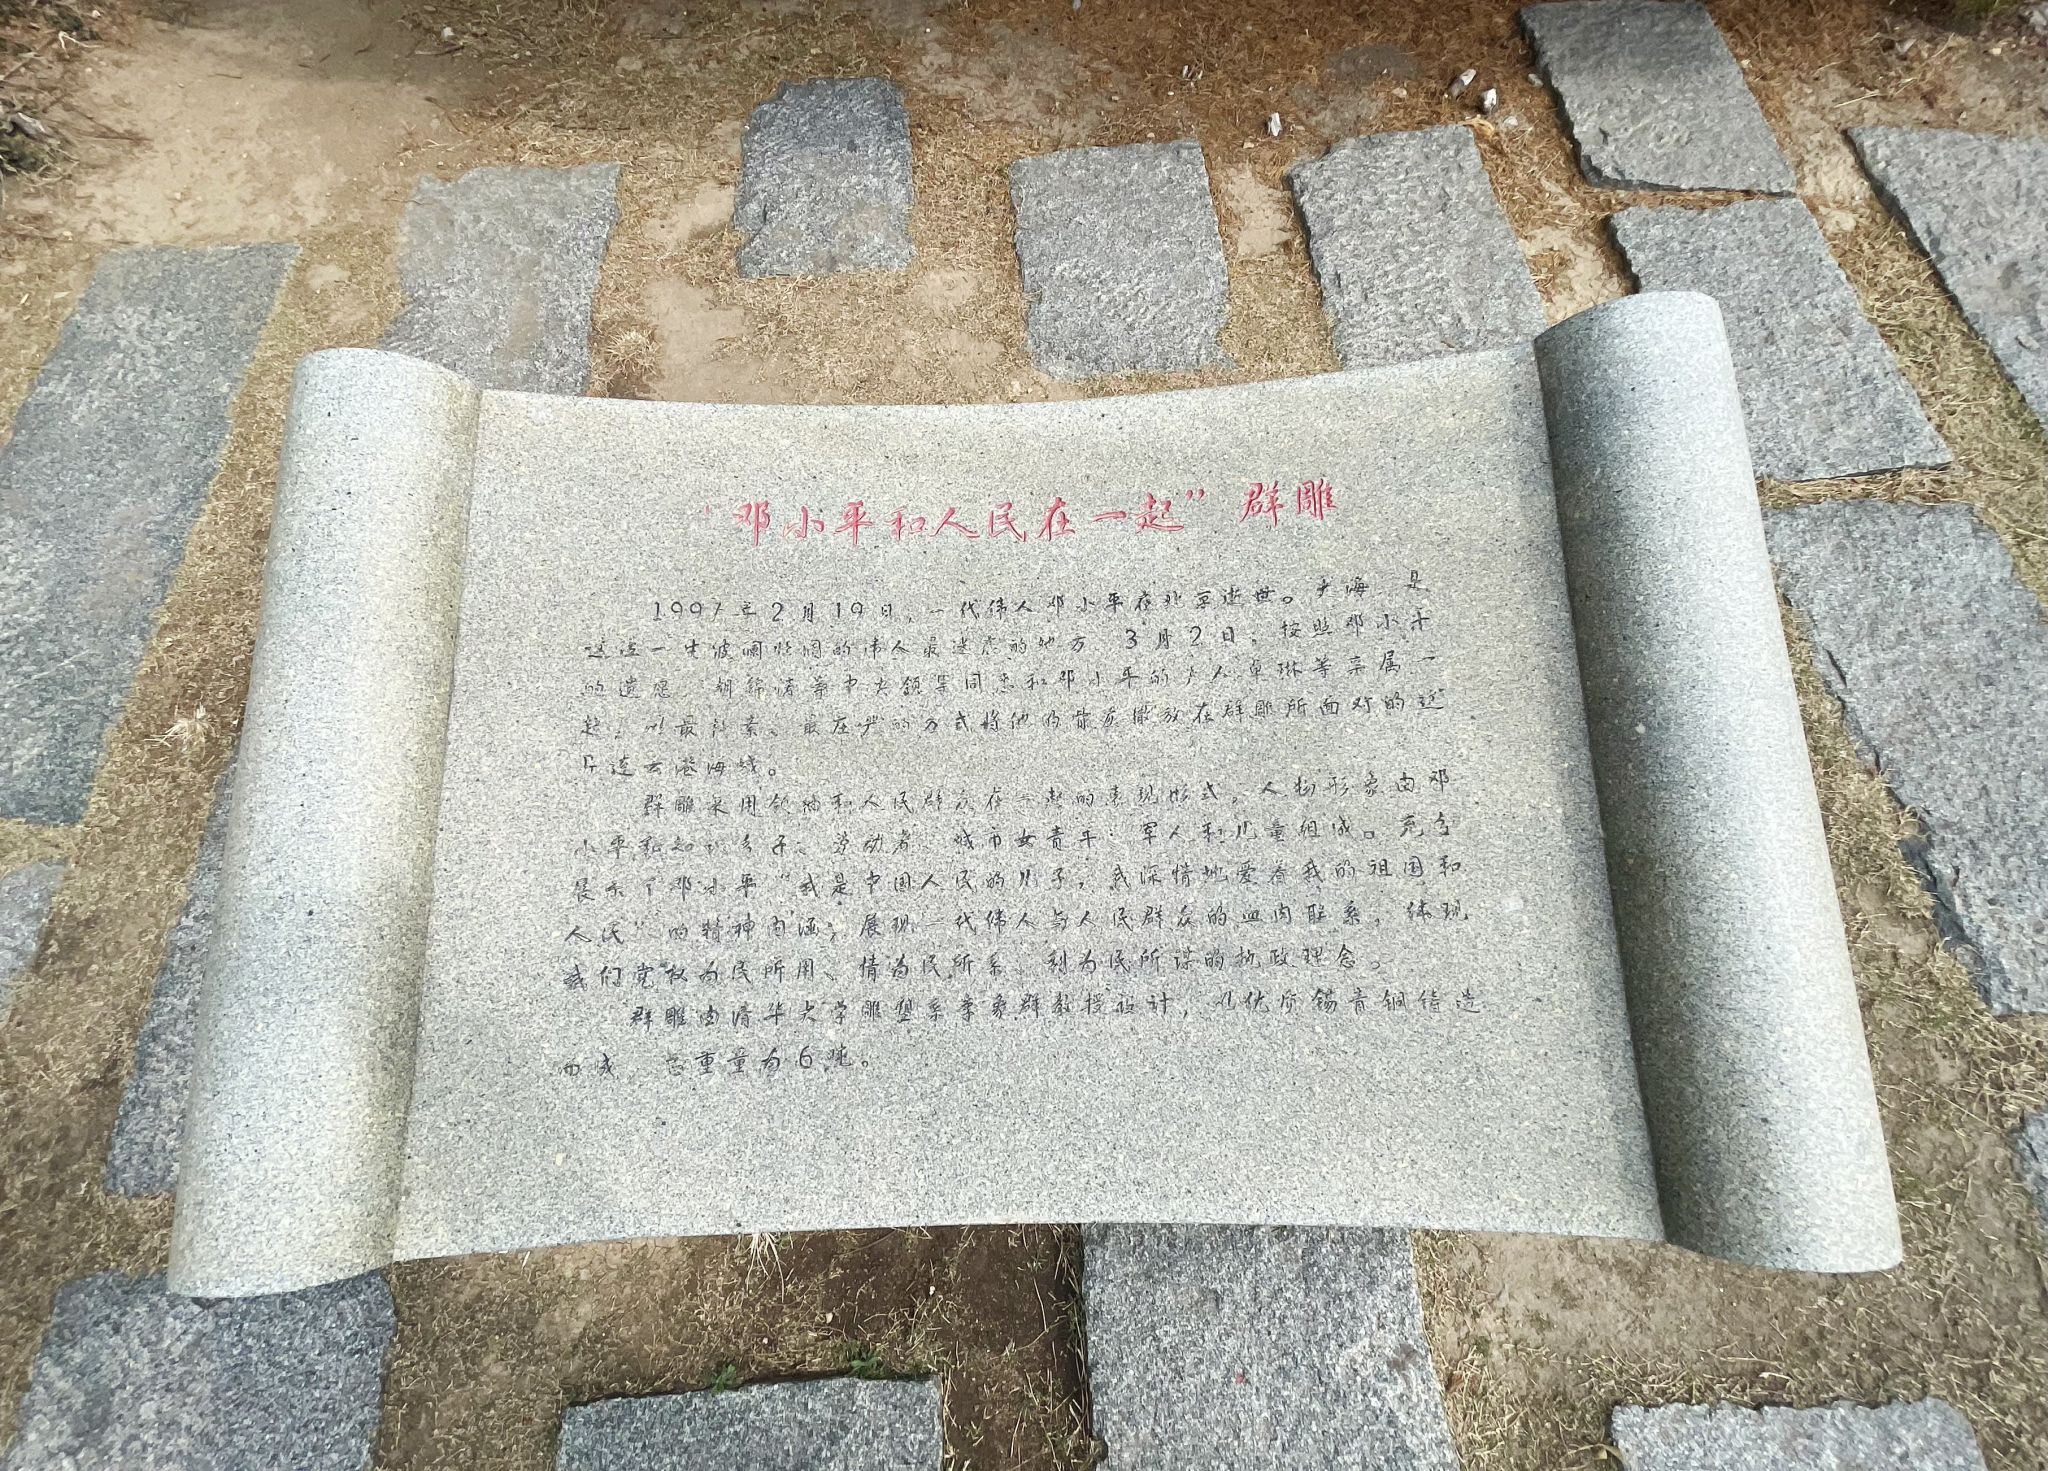 “邓小平和人民在一起”群雕
1997年2月19日，一代伟人邓小平在北京逝世。大海 是
这位一生波澜壮阔的伟人最迷恋的地方 3月2日，按照邓小平
的遗愿 胡锦涛等中央领导同志和邓小平的夫人卓琳等亲属一
起，以最朴素、最庄严的方式将他的骨灰撒放在群雕所面对的这
片连云港海域。
群雕采用领袖和人民群众在一起的表现形式，人物形象由邓
小平和知识分子、劳动者、城市女青年、军人和儿童组成。充分
展示了邓小平“我是中国人民的儿子，我深情地爱着我的祖国和
人民”的精神内涵，展现一代伟人与人民群众的血肉联系，体现
我们党权为民所用、情为民所系 利为民所谋的执政理念。
群雕由清华大学雕塑系李象群教授设计，以优质锡青铜铸造
而成 总重量为6吨。